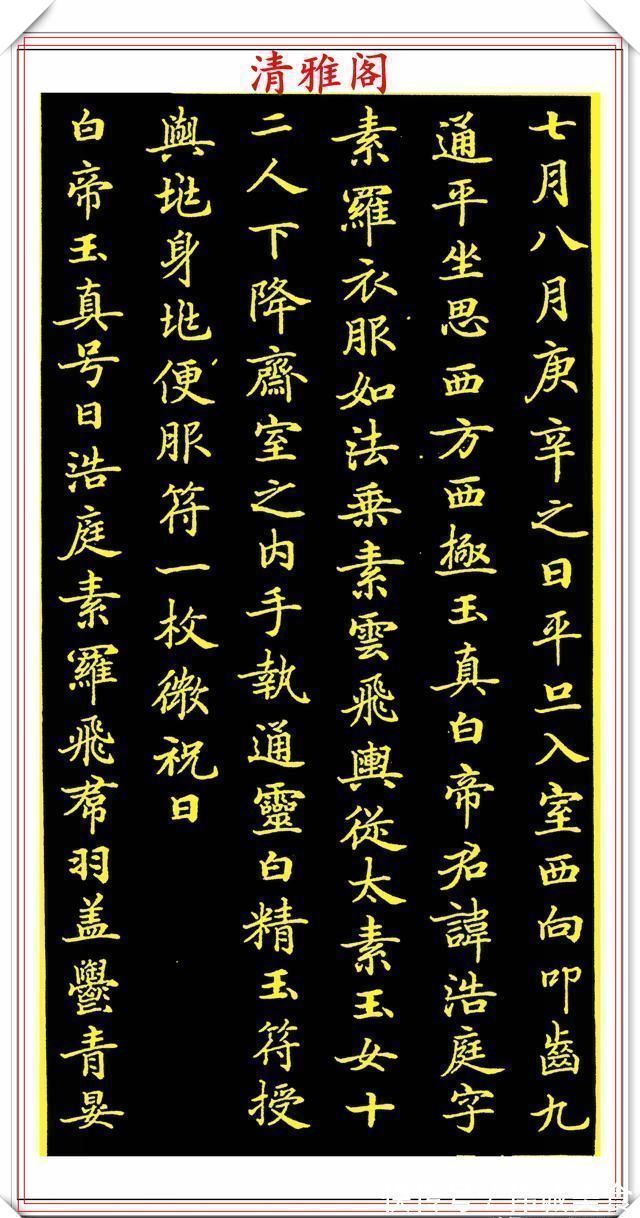 清雅阁
七月八月庚辛之日平旦入室西向叩齒九
通平坐思西方西極玉真白帝君諱浩庭字
素羅衣服如法乗素雲飛輿從太素玉女十
二人下降齋室之内手執通靈白精玉符授
與地身地便服符一枚微祝曰
白帝玉真号曰浩庭素羅飛帬羽盖鬱青晏